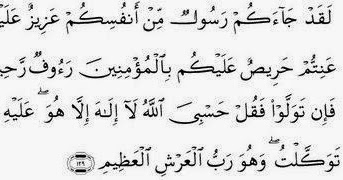 لَقَدْ جَاءَكُمْ رَسُولٌ مِّنْ أَنفُسِكُمْ عَزِيزٌ عَلَيْ
عَنِتُّمْ حَرِيصٌ عَلَيْكُم بِالْمُؤْمِنِينَ رَءُوفٌ رَّحِي
فَإِن تَوَلَّوْا فَقُلْ حَسْبِيَ اللَّهُ لَا إِلَٰهَ إِلَّا هُوَ ۖ عَلَيْهِ
تَوَكَّلْتُ ۖ وَهُوَ رَبُّ الْعَرْشِ الْعَظِيمِ ﴿١٢٩﴾